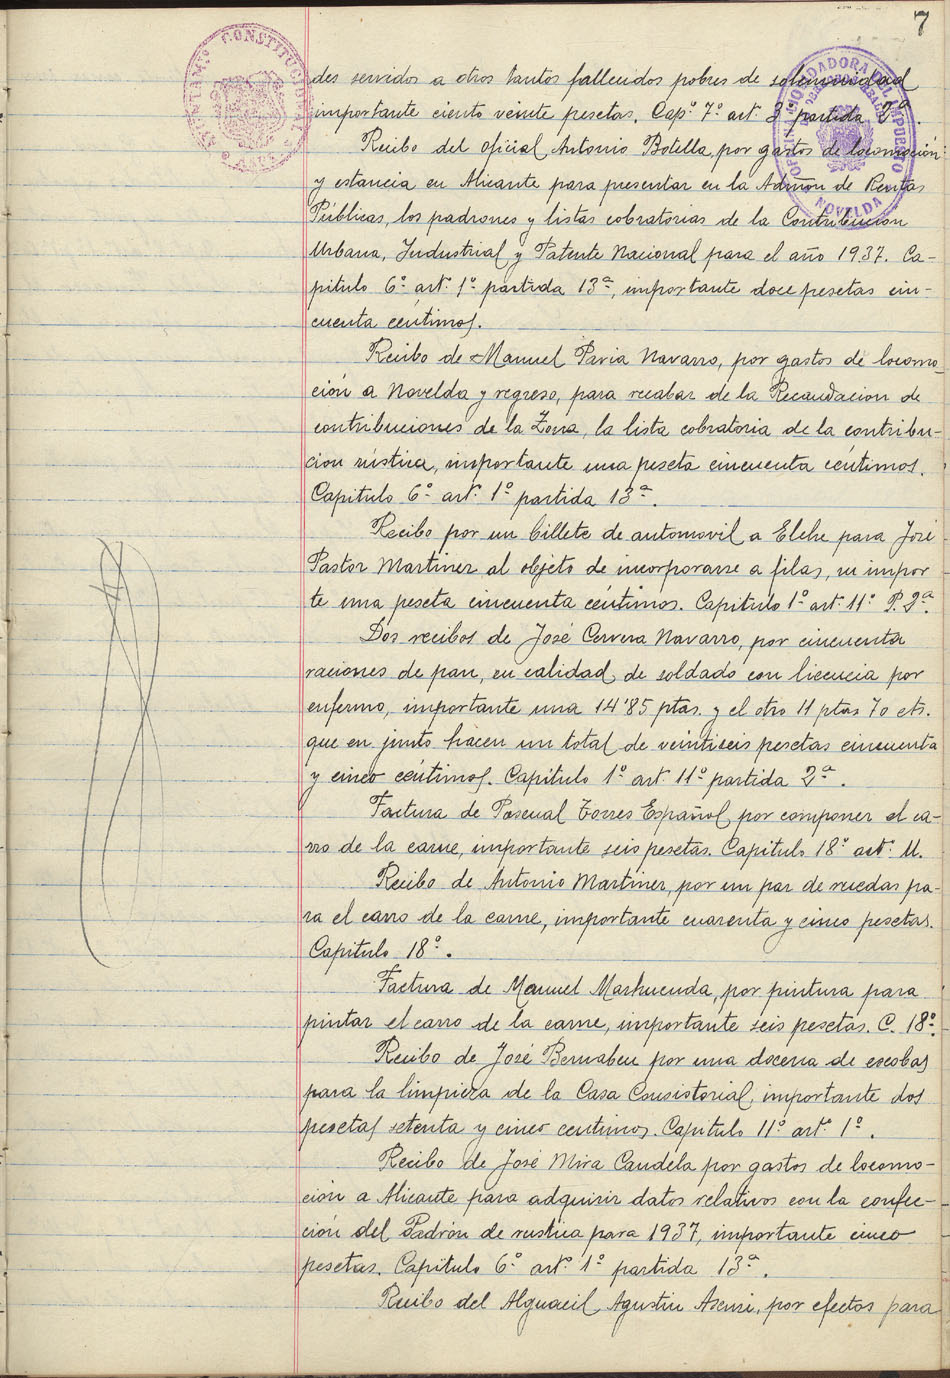 7
AYUNTAM.º CONSTITUCIONAL
OFICINA LIQUIDADORA DEL IMPUESTO
NOVELDA
des servidos a otros tantos fallecidos pobres de solemnidad
importante ciento veinte pesetas. Cap.º 7.º art. 3 partida 2ª.
Recibo del oficial Antonio Botella, por gastos de locomoción
y estancia en Alicante para presentar en la Admon de Rentas
Públicas, los padrones y listas cobratorias de la Contribucion
Urbana, Industrial y Patente Nacional para el año 1937. Ca-
pitulo 6º art. 1º partida 13ª, importante doce pesetas cin-
cuenta céntimos.
Recibo de Manuel Pavia Navarro, por gastos de locomo-
ción a Novelda y regreso, para recabar de la Recaudacion de
contribuciones de la Zona, la lista cobratoria de la contribu-
cion rústica, importante una peseta cincuenta céntimos.
Capitulo 6º art. 1º partida 13ª.
Recibo por un billete de automovil a Elche para José
Pastor Martinez al objeto de incorporarse a filas, su impor
te una peseta cincuenta céntimos. Capitulo 1º art. 11º P. 2ª.
Dos recibos de José Cervera Navarro, por cincuenta
raciones de pan, en calidad de soldado con licencia por
enfermo, importante una 14'85 ptas. y el otro 11 ptas 70 cts.
que en junto hacen un total de veintiseis pesetas cincuenta
y cinco céntimos. Capitulo 1º art. 11º partida 2ª.
Factura de Pascual Torres Español, por componer el ca-
rro de la carne, importante seis pesetas. Capitulo 18º art. U.
Recibo de Antonio Martinez, por un par de ruedas pa-
ra el carro de la carne, importante cuarenta y cinco pesetas.
Capitulo 18º.
Factura de Manuel Marhuenda, por pintura para
pintar el carro de la carne, importante seis pesetas. C. 18º.
Recibo de José Bernabeu por una docena de escobas
para la limpieza de la Casa Consistorial, importante dos
pesetas setenta y cinco centimos. Capitulo 11º art. 1º.
Recibo de José Mira Candela por gastos de locomo-
ción a Alicante para adquirir datos relativos con la confec-
ción del Padrón de rustica para 1937, importante cinco
pesetas. Capitulo 6º art. 1º partida 13ª.
Recibo del Alguacil, Agustin Asensi, por efectos para